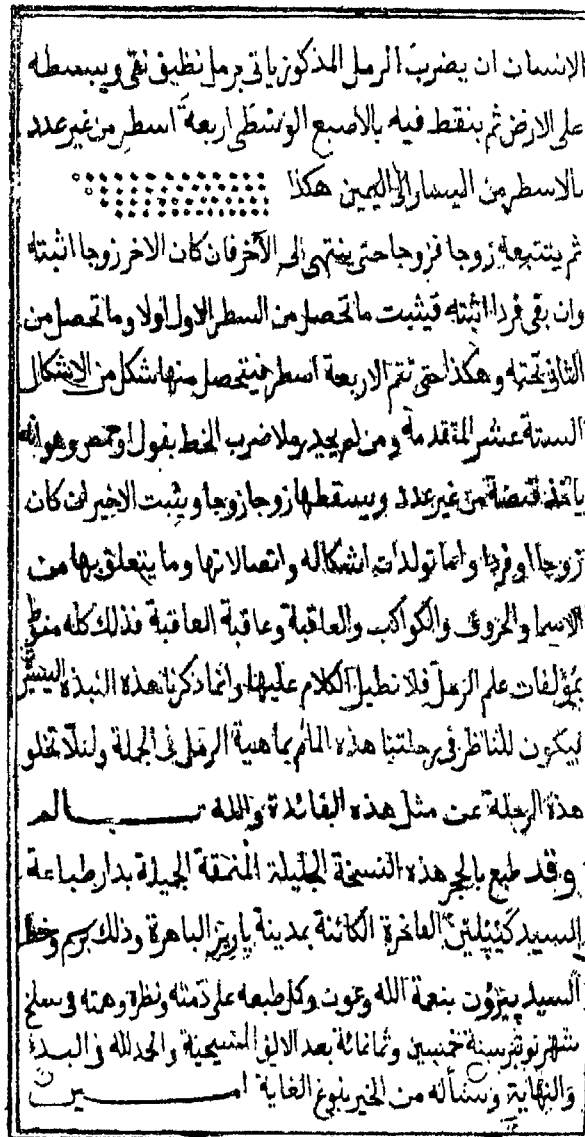 الانسان ان يضرب الرمل المذكور ياتى برمل نظيف نقى ويبسطه
على الارض ثم ينقط فيه بالاصبع الوسطى اربعة اسطر من غير عدد
بالاسطر من اليسار الى اليمين هكذا
ثم يتتبعه زوجا فزوجا حتى ينتهى الى الآخر فان كان الاخر زوجا اثبته
وان بقى فردا اثبته فيثبت ما تحصل من السطر الاول اولا وما تحصل من
الثانى تحته وهكذا حتى تتم الاربعة اسطر فيتحصل منها شكل من الاشكال
الستة عشر المتقدمة ومن لم يجد رملا ضرب الخط بفول او حمص وهو انه
ياخذ قبضة من غير عدد ويسقطها زوجا زوجا ويثبت الاخير ان كان
زوجا او فردا واما تولدات اشكاله واتصالاتها وما يتعلق بها من
الاسما والحروف والكواكب والعاقبة وعاقبة العاقبة فذلك كله منوط
بمؤلفات علم الرمل فلا نطيل الكلام عليها وانما ذكرنا هذه النبذة اليسيرة
ليكون للناظر فى رحلتنا هذه المام بماهية الرمل فى الجملة ولئلا تخلو
هذه الرحلة عن مثل هذه الفائدة والله
وقد طبع بالحجر هذه النسخة الجليلة المنمقة الجميلة بدار طباعة
السيد كيپلين الفاخرة الكائنة بمدينة پاريز الباهرة وذلك برسم وخط
السيد پيرون بنعمة الله وعون وكل طبعه على ذمته ونظره وهمته فى سلخ
شهر سنة خمسين وثمانمائة بعد الالف المسيحية والحمد لله فى البدء
والنهاية ونسأله من الخير بلوغ الغاية امــــين